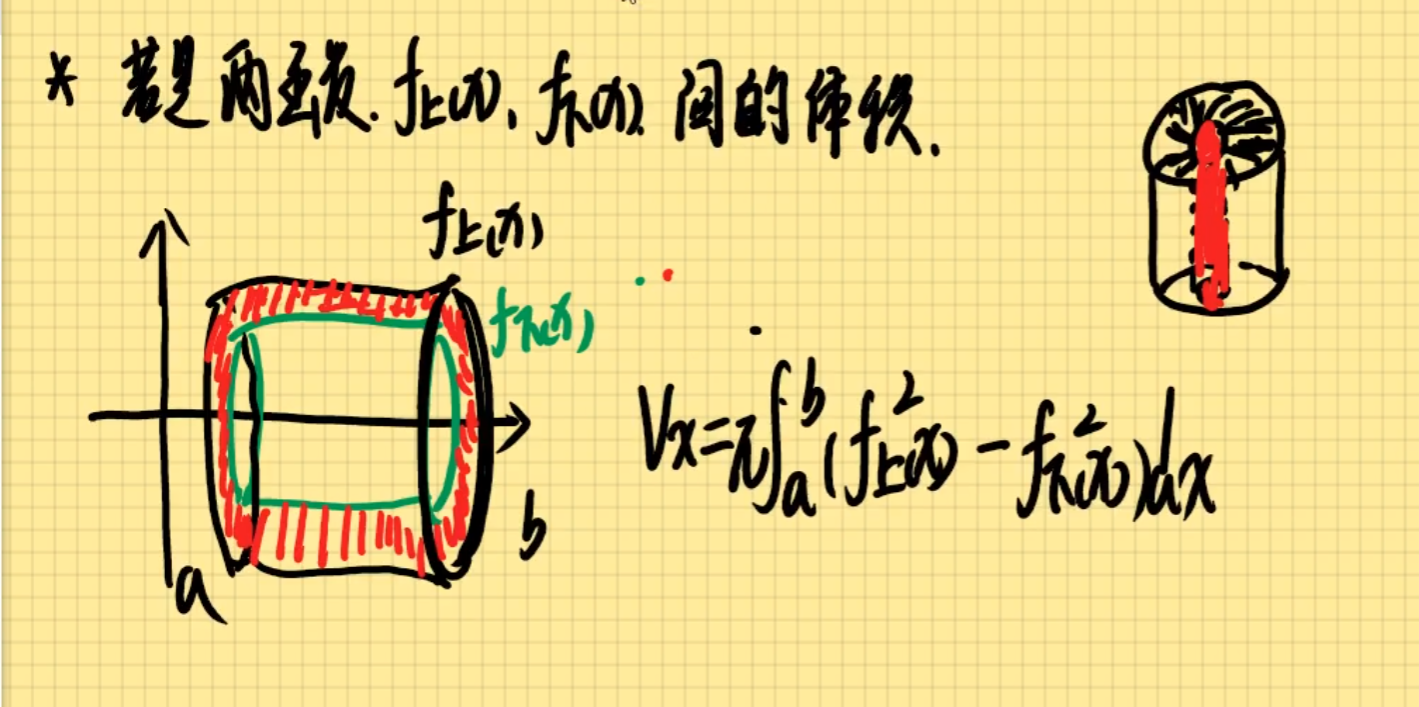 * 若是两函数. f上(x), f下(x) 间的体积.
f上(x)
f下(x)
Vx=π∫_a^b (f上²(x) - f下²(x))dx
b
a